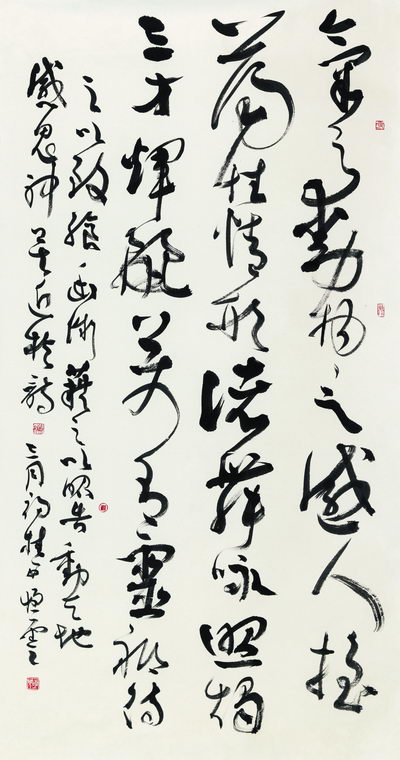 氣之動物々之感人搖
蕩性情形諸舞詠照燭
三才輝麗萬有靈祇待
之以致飨幽微藉之以昭告動天地
感鬼神莫近於詩 三月初桂西